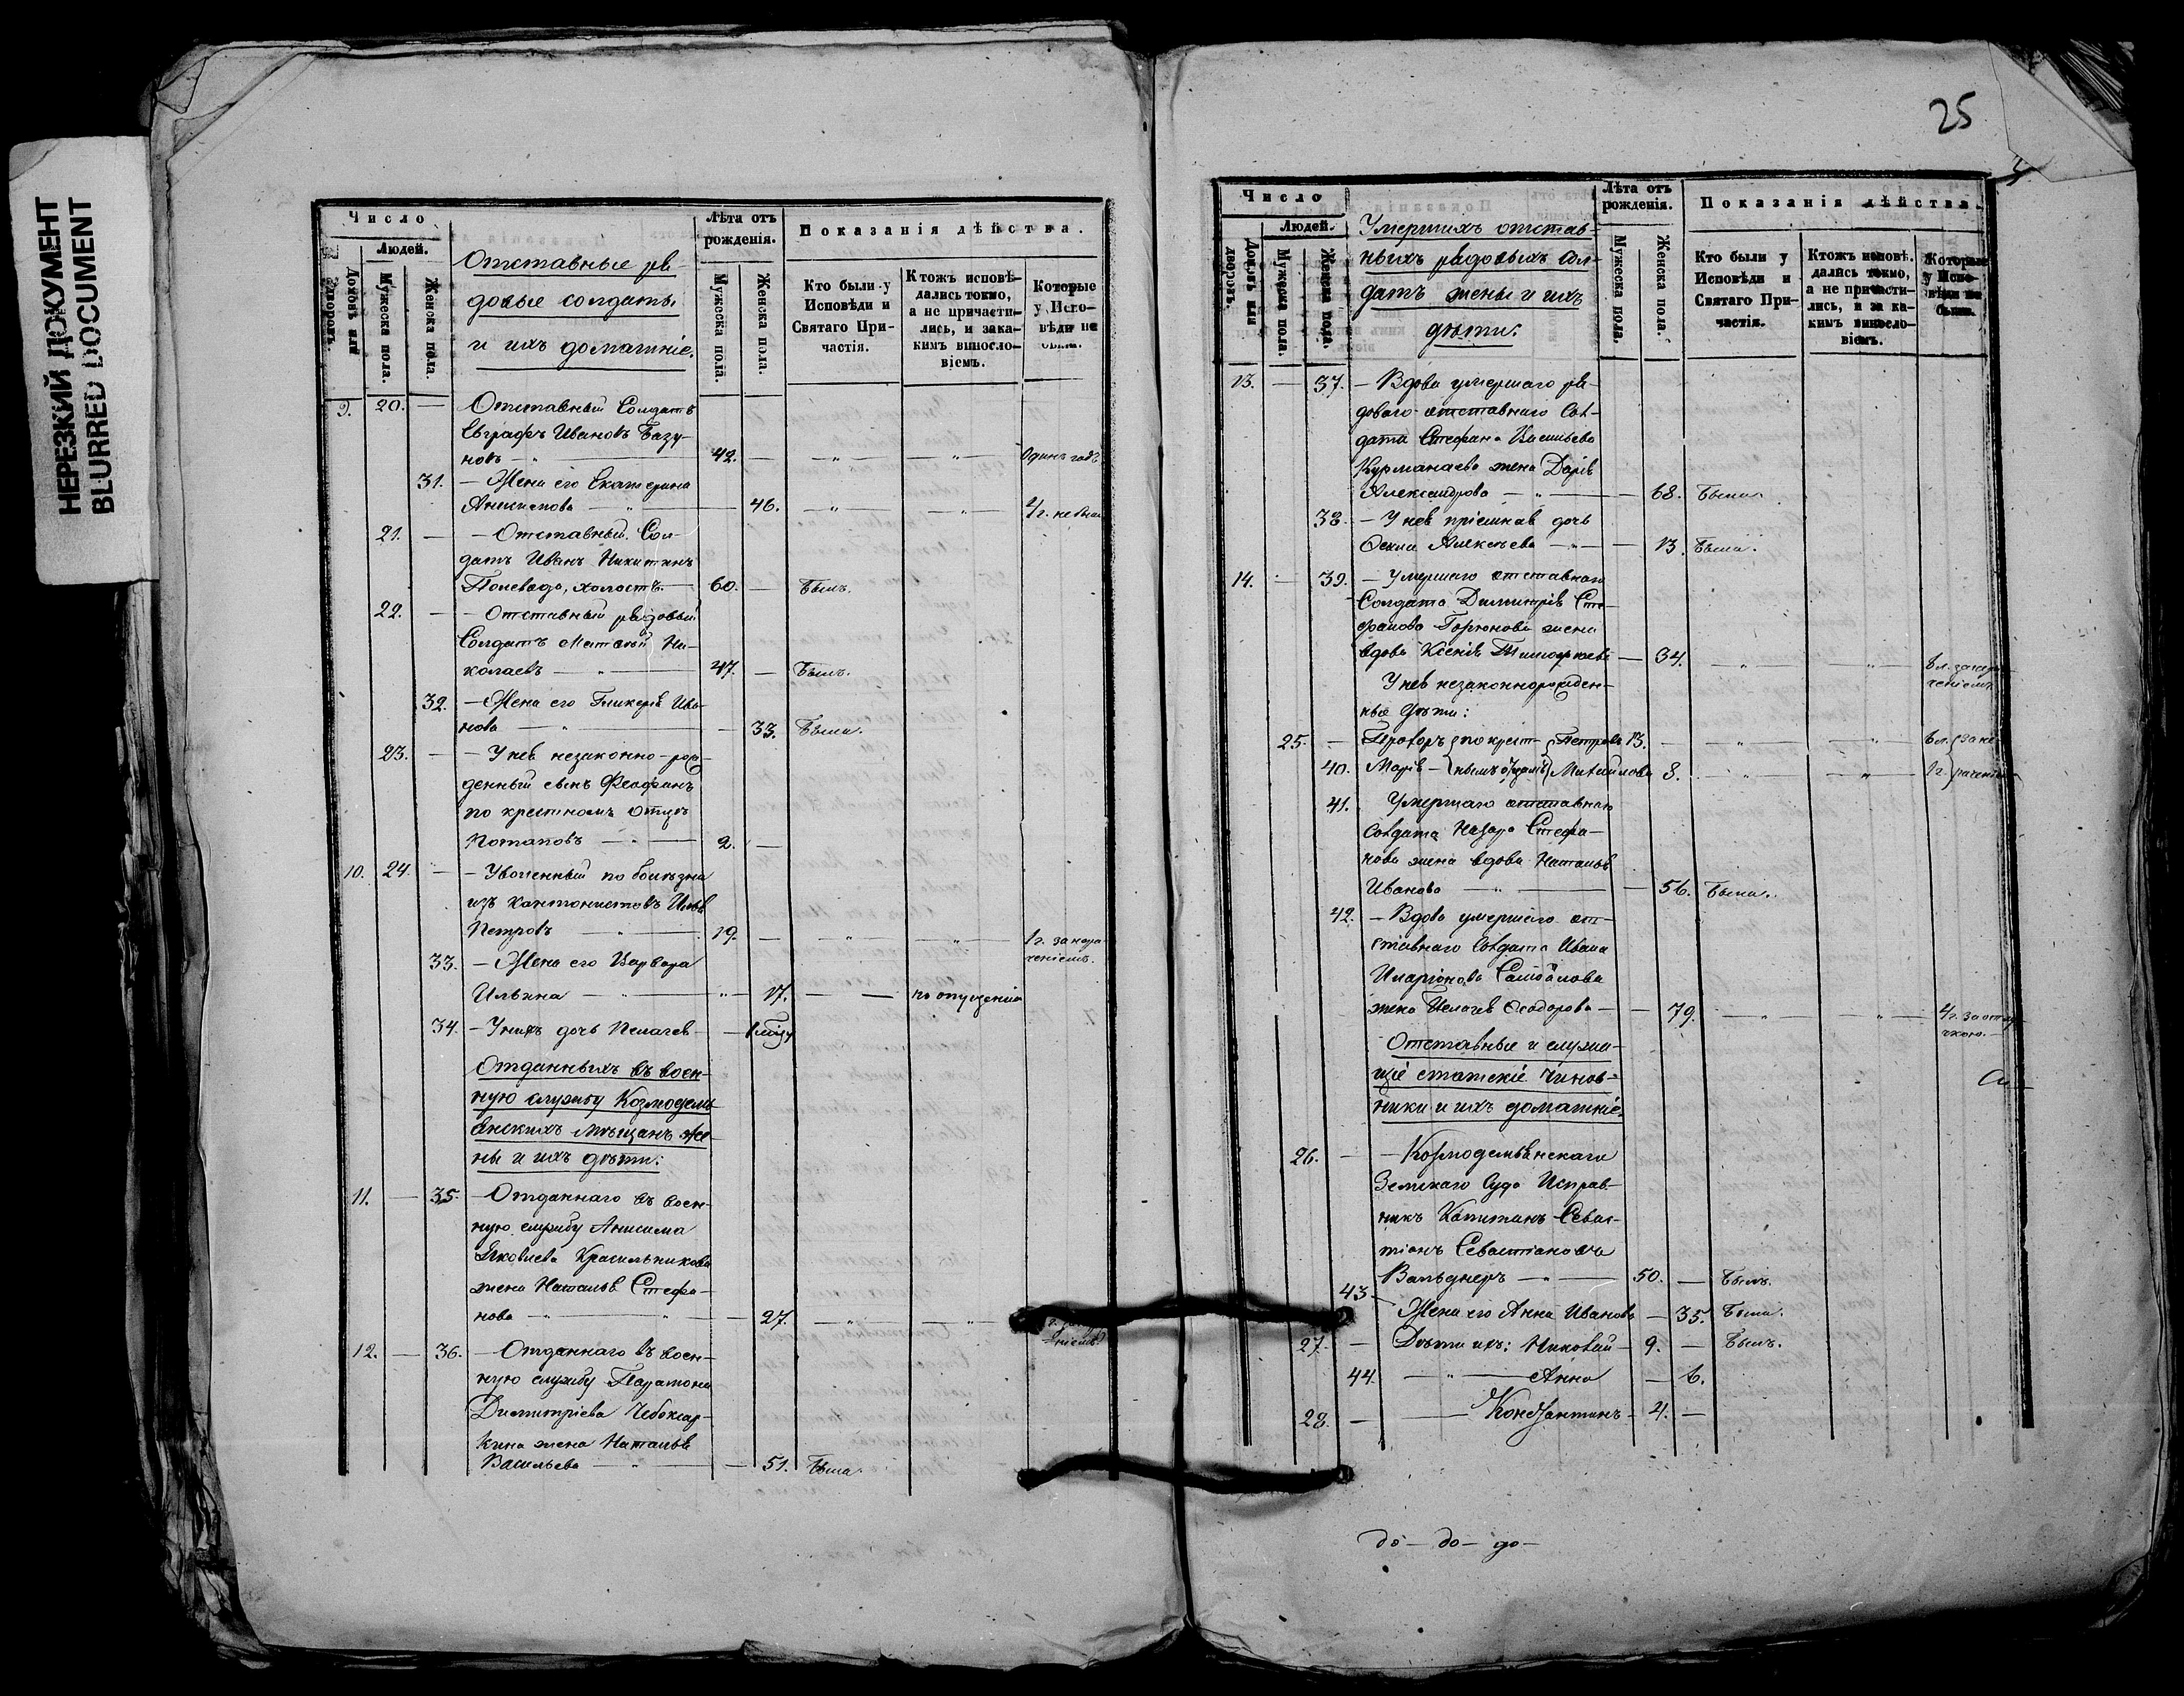 НЕРЕЗКИЙ ДОКУМЕНТ
BLURRED DOCUMENT
Число
Домовъ или дворовъ.
Людей.
Мужеска пола.
Женска пола.
Отставные ря-
довые солдаты
и ихъ домашніе.
Лѣта отъ рожденія.
Мужеска пола.
Женска пола.
Показанія дѣйства.
Кто были у
Исповѣди и
Святаго При-
частія.
Ктожъ исповѣ-
дались токмо,
а не причасти-
лись, и зака-
кимъ виносло-
віемъ.
Которые
у Испо-
вѣди не
были.
9. 20. — Отставный Солдатъ
Евграфъ Ивановъ Базу-
новъ — " — 42. — — " — — " — Одинъ годъ
31. — Жена его Екатерина
— " — 46. — " — — " —
21. — — Отставный Сол-
датъ Иванъ Никитинъ
холостъ. — 60. — Былъ.
22. — — Отставный рядовый
Солдатъ Матвѣй Ни-
колаевъ — " — 47. — Былъ.
32. — Жена его Гликерія Ива-
нова — " — — 33. Была.
23. — — У нея незаконно-рож-
денный сынъ Феофанъ
по крестномъ отцѣ
Потаповъ — " — 2. —
10. 24. — — Уволенный по болѣзни
изъ кантонистовъ Илья
Петровъ — " — 19. — — " — — " — 1 г. за нера-
ченіемъ.
33. — Жена его Варвара
Ильина — " — " — 17. — — по опущенію
34. — У нихъ дочь Пелагея —
Отданныхъ въ воен-
ную службу Козмодемь-
янскихъ мѣщанъ же-
ны и ихъ дѣти:
11. — 35. — Отданнаго въ воен-
ную службу Анисима
Яковлева Красильникова
жена Наталья Стефа-
нова — " — " — 27. — " — — " —
ніемъ.
12. — 36. — Отданнаго въ воен-
ную службу Парамона
Димитріева Чебоксар-
кина жена Наталья
Васильева — " — — 51. Была.
25
Число
Домовъ или дворовъ.
Людей.
Мужеска пола.
Женска пола.
Умершихъ отстав-
ныхъ рядовыхъ сол-
датъ жены и ихъ
дѣти:
Лѣта отъ рожденія.
Мужеска пола.
Женска пола.
Показанія дѣйства.
Кто были у
Исповѣди и
Святаго При-
частія.
Ктожъ исповѣ-
дались токмо,
а не причасти-
лись, и за ка-
кимъ виносло-
віемъ.
Которые
у Испо-
вѣди не
были.
13. — 37. — Вдова умершаго ря-
доваго отставнаго Сол-
дата Стефана Васильева
Курманаева жена Дарія
Александрова — " — — 68. Была.
38. — У нея пріемная дочь
Алексѣева — " — — 13. Была.
14. — 39. — Умершаго отставнаго
Солдата Димитрія Сте-
фанова Горюнова жена
вдова Ксенія Тимофеева — 34. — " — — " —
У нея незаконнорожден-
ные дѣти:
25. — Прохоръ по крест- Петровъ 13. — — " — — " —
40. Марія — нымъ отцамъ Михайлова 8. — " — — " —
41. Умершаго отставнаго
Солдата Назара Стефа-
нова жена вдова Наталья
Иванова — " — — 56. Была.
42. — Вдова умершаго от-
ставнаго Солдата Ивана
Иларіонова Самойлова
жена Пелагея Феодорова — — 79. — " — — " — 4 г. за отлу-
чкою.
Отставные и служа-
щіе статскіе чинов-
ники и ихъ домашніе.
26. — — Козмодемьянскаго
Земскаго Суда Исправ-
никъ Капитанъ Севас-
тіанъ Севастіановъ
Вальднеръ — " — 50. — Былъ.
43. — Жена его Анна Иванова — 35. Была.
27. — Дѣти ихъ: Николай — 9. — Былъ.
44. — " — Анна — 6.
28. — — Константинъ — 4. —
до — до — до —